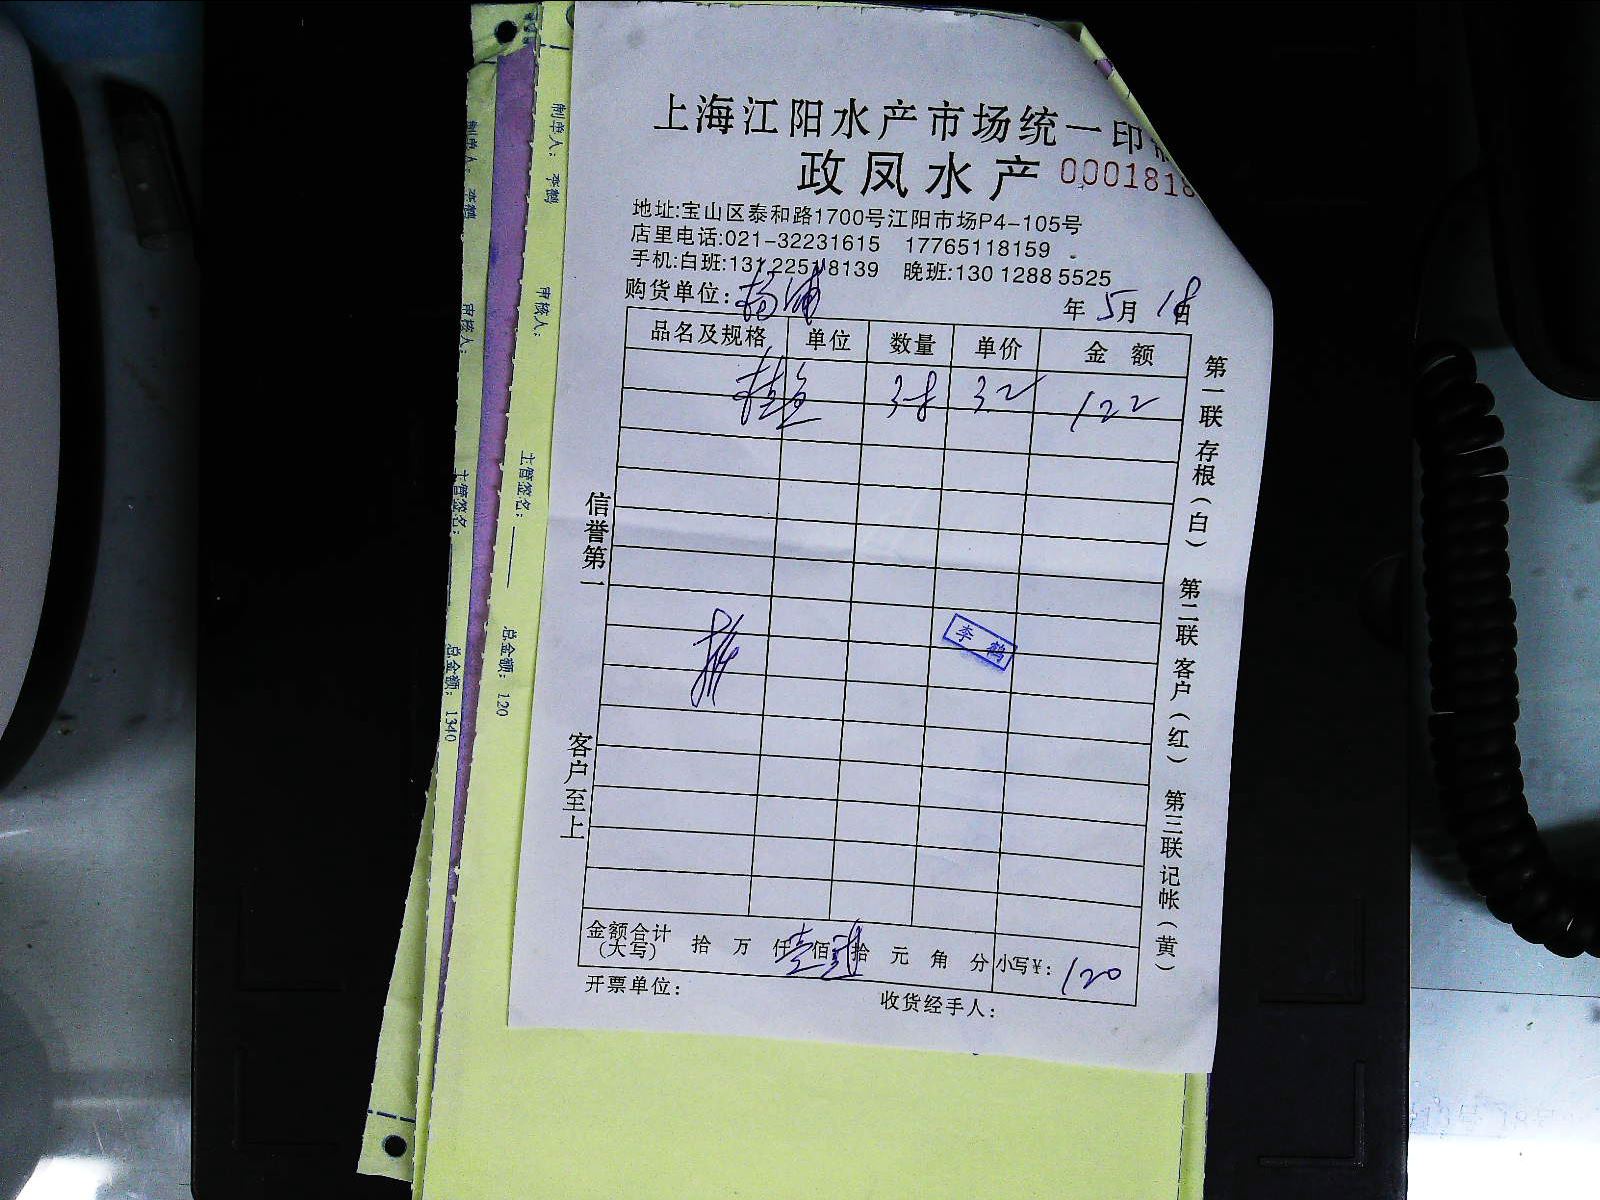 上海江阳水产市场统一印
政凤水产 0001818
地址:宝山区泰和路1700号江阳市场P4-105号
店里电话:021-32231615 17765118159
手机:白班:13122518139 晚班:13012885525
购货单位: 杨浦 年5月18日
品名及规格 单位 数量 单价 金额
桂鱼 38 32 122
李鹤
金额合计(大写) 拾 万 仟 壹 佰 贰 拾 元 角 分 小写¥: 120
开票单位: 收货经手人:
信誉第一
客户至上
第一联存根(白) 第二联客户(红) 第三联记帐(黄)
制单人: 李鹤 审核人: 主管签名: 总金额: 120
制单人: 李鹤 审核人: 主管签名: 总金额: 1340